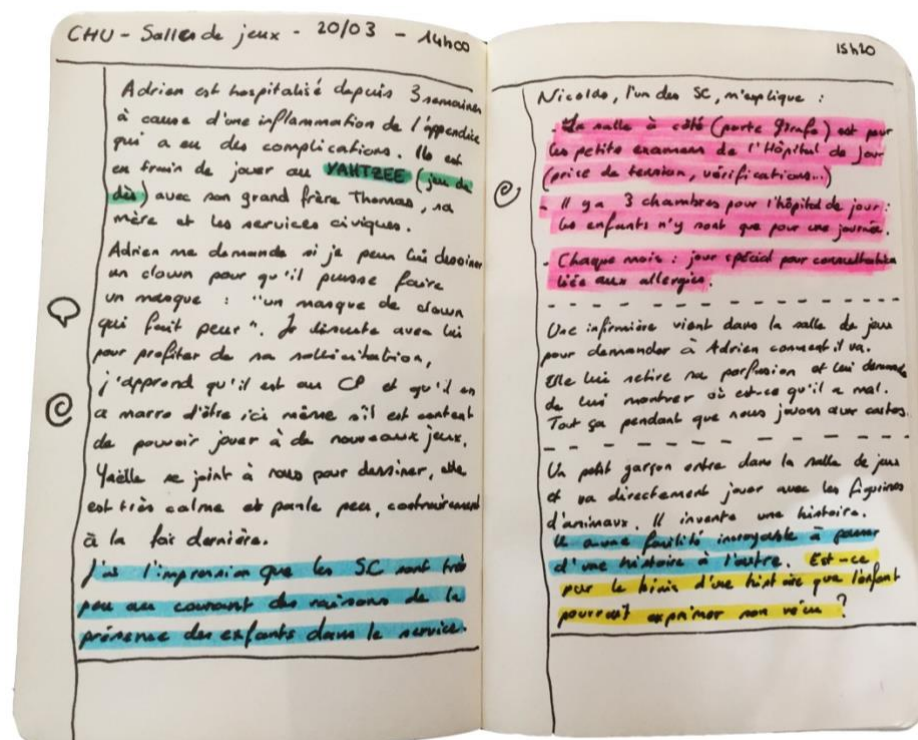 CHU - Salle de jeux - 20/03 - 14h00
Adrien est hospitalisé depuis 3 semaines
à cause d'une inflammation de l'appendice
qui a eu des complications. Ils est
en train de jouer au YAHTZEE (jeu de
dès) avec son grand frère Thomas, sa
mère et les services civiques.
Adrien me demande si je peux lui dessiner
un clown pour qu'il puisse faire
un masque : "un masque de clown
qui fait peur". Je discute avec lui
pour profiter de sa sollicitation,
j'apprend qu'il est au CP et qu'il en
a marre d'être ici même s'il est content
de pouvoir jouer à de nouveaux jeux.
Yaëlle se joint à nous pour dessiner, elle
est très calme et parle peu, contrairement
à la fois dernière.
J'ai l'impression que les SC sont très
peu au courant des raisons de la
présence des enfants dans le service.
15h20
, l'un des SC, m'explique :
- La salle à côté (porte Girafe) est pour
les petits examens de l'Hôpital de jour
(prise de tension, vérifications...)
- Il y a 3 chambres pour l'hôpital de jour :
les enfants n'y sont que pour une journée.
- Chaque mois : jour spécial pour consultation
liée aux allergies.
Une infirmière vient dans la salle de jeux
pour demander à Adrien comment il va.
Elle lui retire sa perfusion et lui demande
de lui montrer où est-ce qu'il a mal.
Tout ça pendant que nous jouons aux cartes.
Un petit garçon entre dans la salle de jeux
et va directement jouer avec les figurines
d'animaux. Il invente une histoire.
Il a une facilité incroyable à passer
d'une histoire à l'autre. Est-ce
par le biais d'une histoire que l'enfant
pourrait exprimer son vécu ?